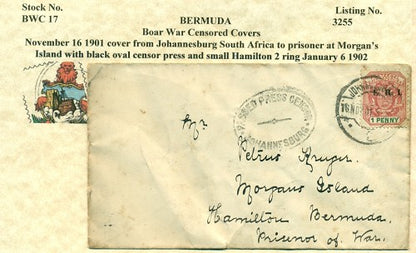 Stock No.
BWC 17
BERMUDA
Listing No.
3255
Boar War Censored Covers
November 16 1901 cover from Johannesburg South Africa to prisoner at Morgan's
Island with black oval censor press and small Hamilton 2 ring January 6 1902
PASSED PRESS CENSOR
JOHANNESBURG
E.R.I.
1 PENNY
Mr.
Petrus Kruger.
Morgans Island
Hamilton Bermuda.
Prisenor of War.